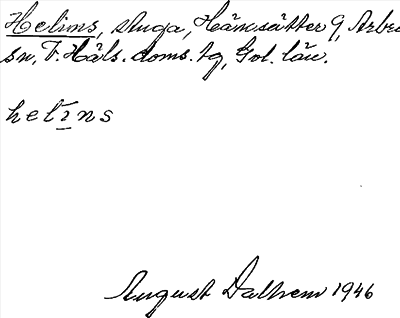 Helims, stuga, Hämsätter 9, Arbrå
sn, V. Häls. doms. tg, Gvl. län.
helins
August Dalhem 1946